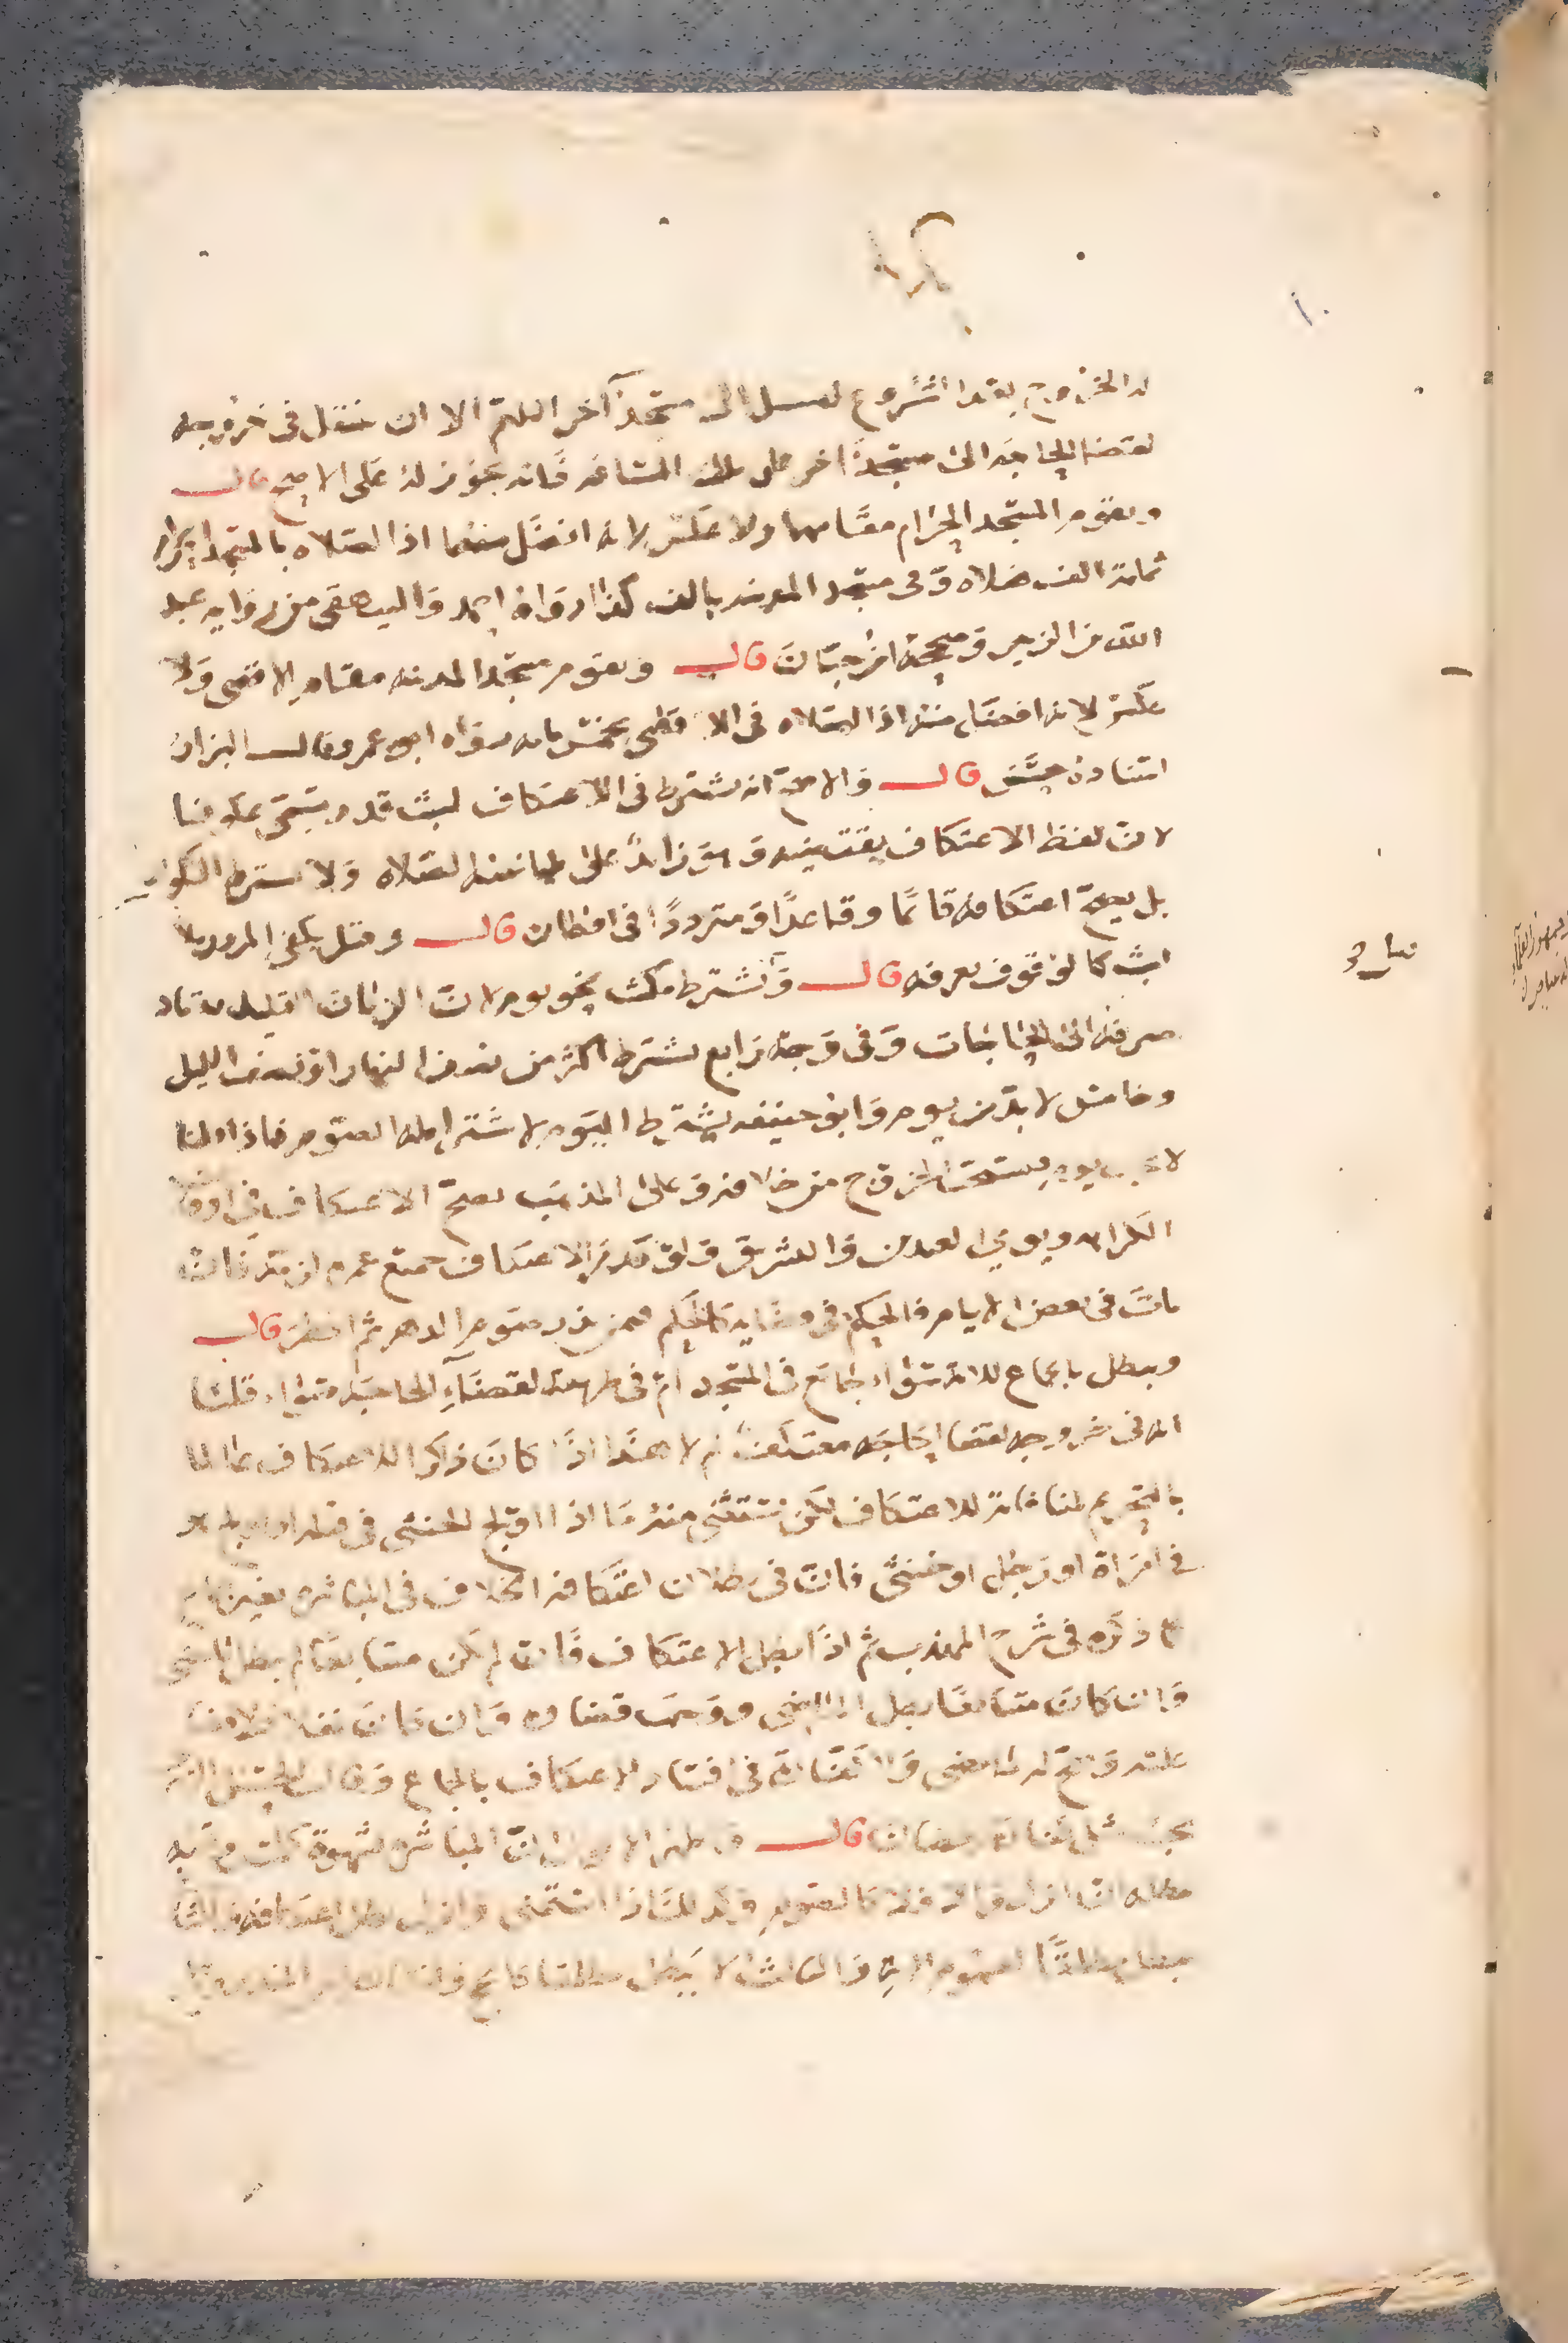 له الخروج بعد الشروع لينتقل الى مسجد آخر اللهم الا ان ينتقل في خروجه
لقضا الحاجة الى مسجد اخر على تلك المسافة فانه يجوز له على الاصح قال
ويقوم المسجد الحرام مقامهما ولا عكس لانه افضل منهما اذ الصلاه بالمسجد الحرام
بمائة الف صلاه وفي مسجد المدينه بالف كذا رواه احمد والبيهقي من رواية عبد
الله بن الزبير وصححه ابن حبان قال ويقوم مسجد المدينه مقام الاقصى ولا
عكس لانه افضل منه اذ الصلاه في الاقصى بخمس مايه رواه ابو عمر وقال البزار
اسناده حسن قال والاصح انه يشترط في الاعتكاف لبث قدر يسمى عكوفا
لان لفظ الاعتكاف يقتضيه وهو زايد على طمانينه الصلاه ولا يشترط السكون
بل يصح اعتكافه قائما وقاعدا ومترددا في اقطاره قال وقيل يكفي المرور بلا
لبث كالوقوف بعرفه قال ويشترط مكث نحو يوم لان الزمان القليل يعتاد
صرفه الى الحاجات وفي وجه رابع يشترط اكثر من نصف النهار او نصف الليل
وخامس لا بد من يوم وابو حنيفه يشترط اليوم لاشتراطه الصوم فاذا قلنا
لا يجب يوم يستحب الخروج من خلافه وعلى المذهب يصح الاعتكاف في اوقات
الكراهه ويومي العيدين والتشريق ولو نذر الاعتكاف جميع عمره
مات في بعض الايام فالحكم في كالحكم فيمن نذر صوم الدهر ثم افطر قال
ويبطل بالجماع للاية سواء جامع في المسجد ام في طريقه لقضاء الحاجة سواء قلنا
انه في خروجه لقضا الحاجه معتكف ام لا هذا اذا كان ذاكرا للاعتكاف عالما
بالتحريم لمنافاته للاعتكاف لكن يستثنى منه ما اذا اولج الخنثى في قبله او اولج هو
في امراة او رجل او خنثى فان في بطلان اعتكافه الخلاف في المباشره بغير جماع
ذكره في شرح المهذب ثم اذا بطل الاعتكاف فان لم يكن متتابعا لم يبطل ما مضى
وان كان متتابعا بطل الماضي ووجب قضاوه وان كان نفلا فلا قضا
عليه وصح له ما مضى ولا كفارة في افساد الاعتكاف بالجماع وقال الحسن
يجب مثل كفارة رمضان قال واظهر الاقوال ان المباشره بشهوة كلمس وقبله
مبطله ان انزل والا فلا كالصوم وكذلك اذا استمنى وانزل بطل اعتكافه
يبطل مطلقا لعموم الاية والثالث لا يبطل مطلقا كالحج